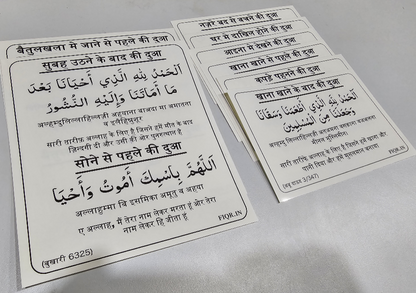 बैतुलखला मे जाने से पहले की दुआ
सुबह उठने के बाद की दुआ
اَلْحَمْدُ لِلّٰهِ الَّذِي أَحْيَانَا بَعْدَ
مَا أَمَاتَنَا وَإِلَيْهِ النُّشُورُ
अल्हम्दुलिल्लाहिल्लजी अहयाना बाअदा मा अमातना
व इलैहिन्नुशूर
सारी तारीफ़ अल्लाह के लिए है जिसने हमें मौत के बाद
ज़िन्दगी दी और उसी की ओर पुनरुत्थान है
सोने से पहले की दुआ
اَللّٰهُمَّ بِاسْمِكَ أَمُوتُ وَأَحْيَا
अल्लाहुम्मा बि इसमिका अमुतु व अहया
ए अल्लाह, मैं तेरा नाम लेकर मरता हूं और तेरा
नाम लेकर हि जीता हूं
(बुखारी 6325)
FIQR.IN
नज़र बद से बचने की दुआ
घर मे दाखिल होने की दुआ
आइना मे देखने की दुआ
खाना खाने से पहले की दुआ
कपड़े पहनने की दुआ
खाना खाने के बाद की दुआ
اَلْحَمْدُ لِلّٰهِ الَّذِي أَطْعَمَنَا وَسَقَانَا
وَجَعَلَنَا مِنَ الْمُسْلِمِينَ
सारी तारीफ़ अल्लाह के लिए है जिसने हमे खाना और
पानी दिया और हमे मुसलमान बनाया
FIQR.IN